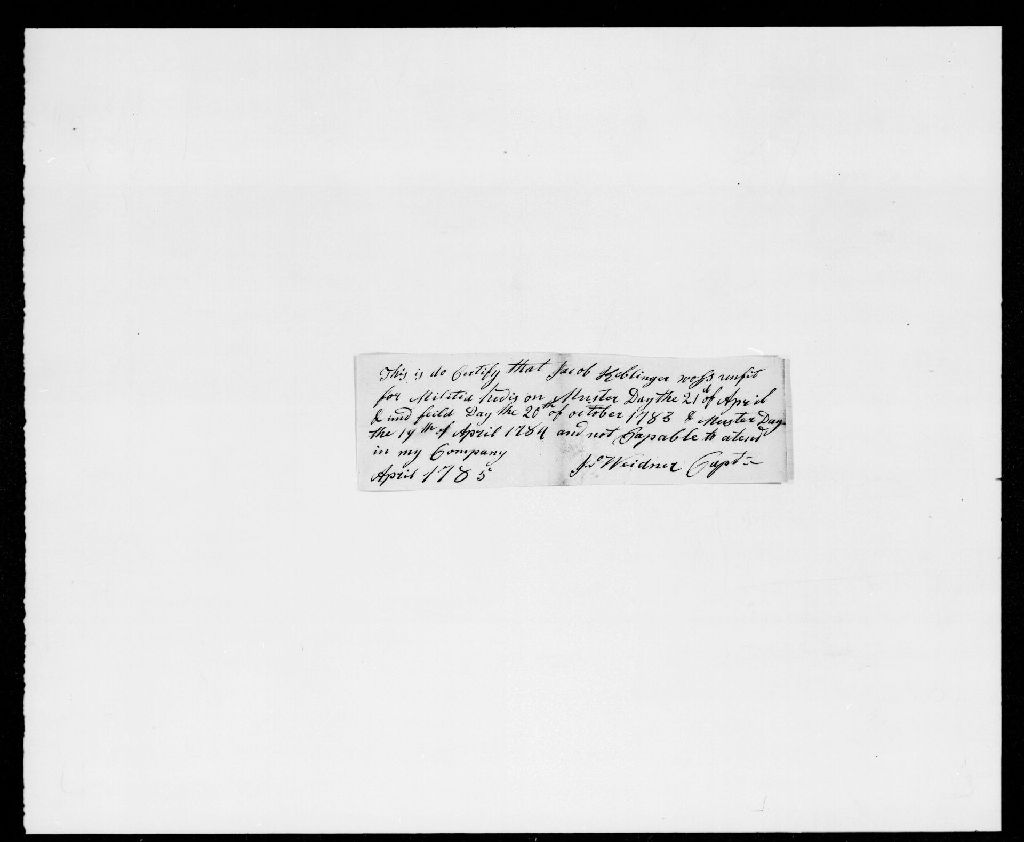 This is do Certify that Jacob Keblinger wass unfit
for Milited on Muster Day the 21d of April
& and feild Day the 20th of october 1783 & Muster Day
the 19th of April 1784 and not Capable to atend
in my Company
April 1785 Jo Weidner Capt